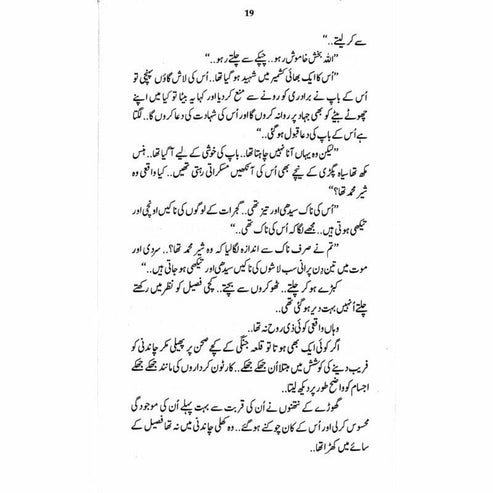 19
سے کر لیتے..“
”اللہ بخش خاموش رہو.. چپکے سے چلتے رہو..“
”اُس کا ایک بھائی کشمیر میں شہید ہو گیا تھا.. اُس کی لاش گاؤں پہنچی تو
اُس کے باپ نے برادری کو رونے سے منع کر دیا اور کہا یہ بیٹا تو کیا میں اپنے
چھوٹے بیٹے کو بھی جہاد پر روانہ کروں گا اور اُس کی شہادت کی دعا کروں گا.. لگتا
ہے اُس کے باپ کی دعا قبول ہو گئی..“
”لیکن وہ یہاں آنا نہیں چاہتا تھا.. باپ کی خوشی کے لیے آ گیا تھا.. ہنس
مکھ تھا سیاہ پگڑی کے نیچے بھی اُس کی آنکھیں مسکراتی رہتی تھیں.. کیا واقعی وہ
شیر محمد تھا؟“
”اُس کی ناک سیدھی اور تیز تھی.. گجرات کے لوگوں کی ناکیں اونچی اور
تیکھی ہوتی ہیں.. مجھے لگا کہ اُس کی ناک تھی..“
”تم نے صرف ناک سے اندازہ لگا لیا کہ وہ شیر محمد تھا؟.. سردی اور
موت میں تین دن پرانی سب لاشوں کی ناکیں سیدھی اور تیکھی ہو جاتی ہیں..“
کبڑے ہو کر چلتے.. ٹھوکروں سے بچتے.. کچی فصیل کو نظر میں رکھتے
چلتے اُنہیں بہت دیر ہو گئی تھی..
وہاں واقعی کوئی ذی روح نہ تھا..
اگر کوئی ایک بھی ہوتا تو قلعہ جنگی کے کچے صحن پر پھیلی مکر چاندنی کو
فریب دینے کی کوشش میں مبتلا اُن جھکے جھکے.. کارٹون کرداروں کی مانند جھکے جھکے
اجسام کو واضح طور پر دیکھ لیتا..
گھوڑے کے نتھنوں نے اُن کی قربت سے بہت پہلے اُن کی موجودگی
محسوس کر لی اور اُس کے کان چوکنے ہو گئے.. وہ کھلی چاندنی میں نہ تھا فصیل کے
سائے میں کھڑا تھا..